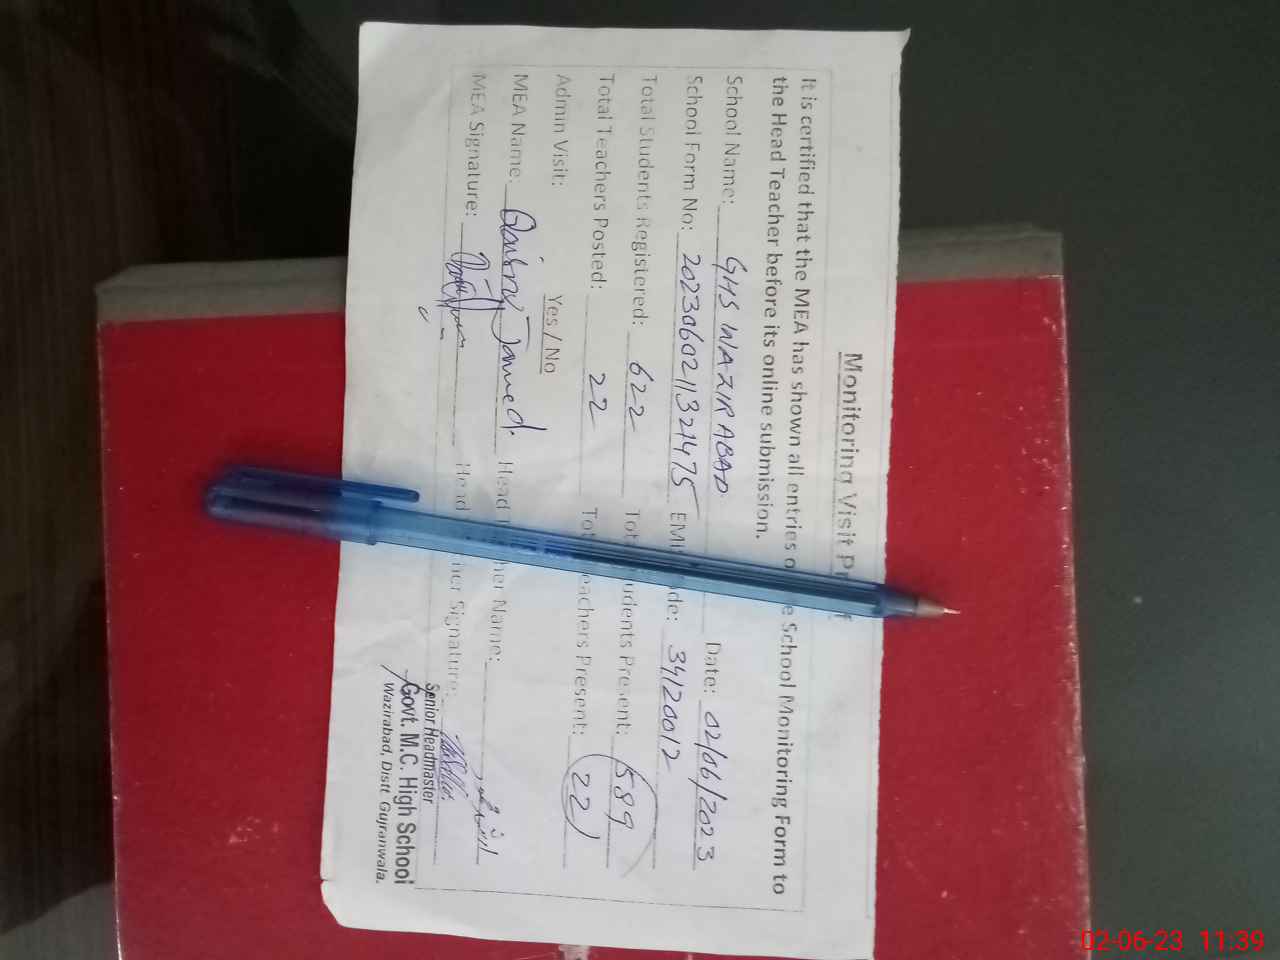 Monitoring Visit Pr f
It is certified that the MEA has shown all entries o e School Monitoring Form to
the Head Teacher before its online submission.
School Name: GHS WAZIRABAD Date: 02/06/2023
School Form No: 2023060211321475 EMI de: 34120012
Total Students Registered: 622 Tot udents Present: 589
Total Teachers Posted: 22 Tot eachers Present: 22
Admin Visit: Yes / No
MEA Name: Jameed. Head T her Name:
MEA Signature: Head her Signature:
Senior Headmaster
Govt. M.C. High School
Wazirabad, Distt. Gujranwala.
02-06-23 11:39